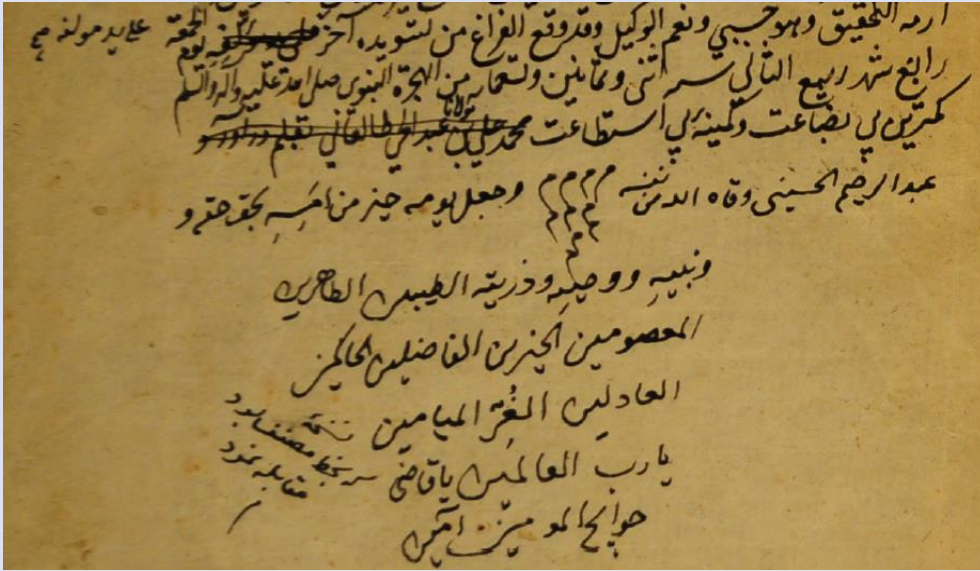 ازمة التحقيق وهو حسبي ونعم الوكيل وقد وقع الفراغ من تسويده آخر يوم الجمعة
على يد مؤلفه صح
رابع شهر ربيع الثاني سنه اثنى وثمانين وتسعمايه من الهجرة النبوى صلى الله عليه وآله والسلم
كمترين بى بضاعت وكمينه بى استطاعت محمد على بن مولانا عبد الحى الطالقانى بقلم در آورد
عبد الرحيم الحسينى وقاه الله من نفسه م م م م وجعل يومه خير من امسه بحق حقه و
ونبيه ووصيه وذريته الطيبين الطاهرين
المعصومين الخيرين الفاضلين الحاكمين
العادلين الغُرّ الميامين
يا رب العالمين يا قاضى
حوايج المومنين امين
نسخه
بخط مصنف بود
مقابله نمود